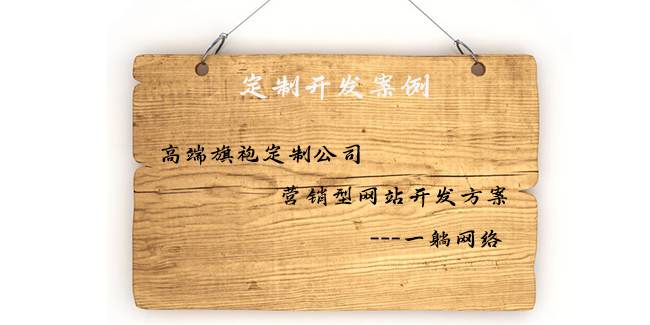 定制开发案例
高端旗袍定制公司
营销型网站开发方案
---一躺网络